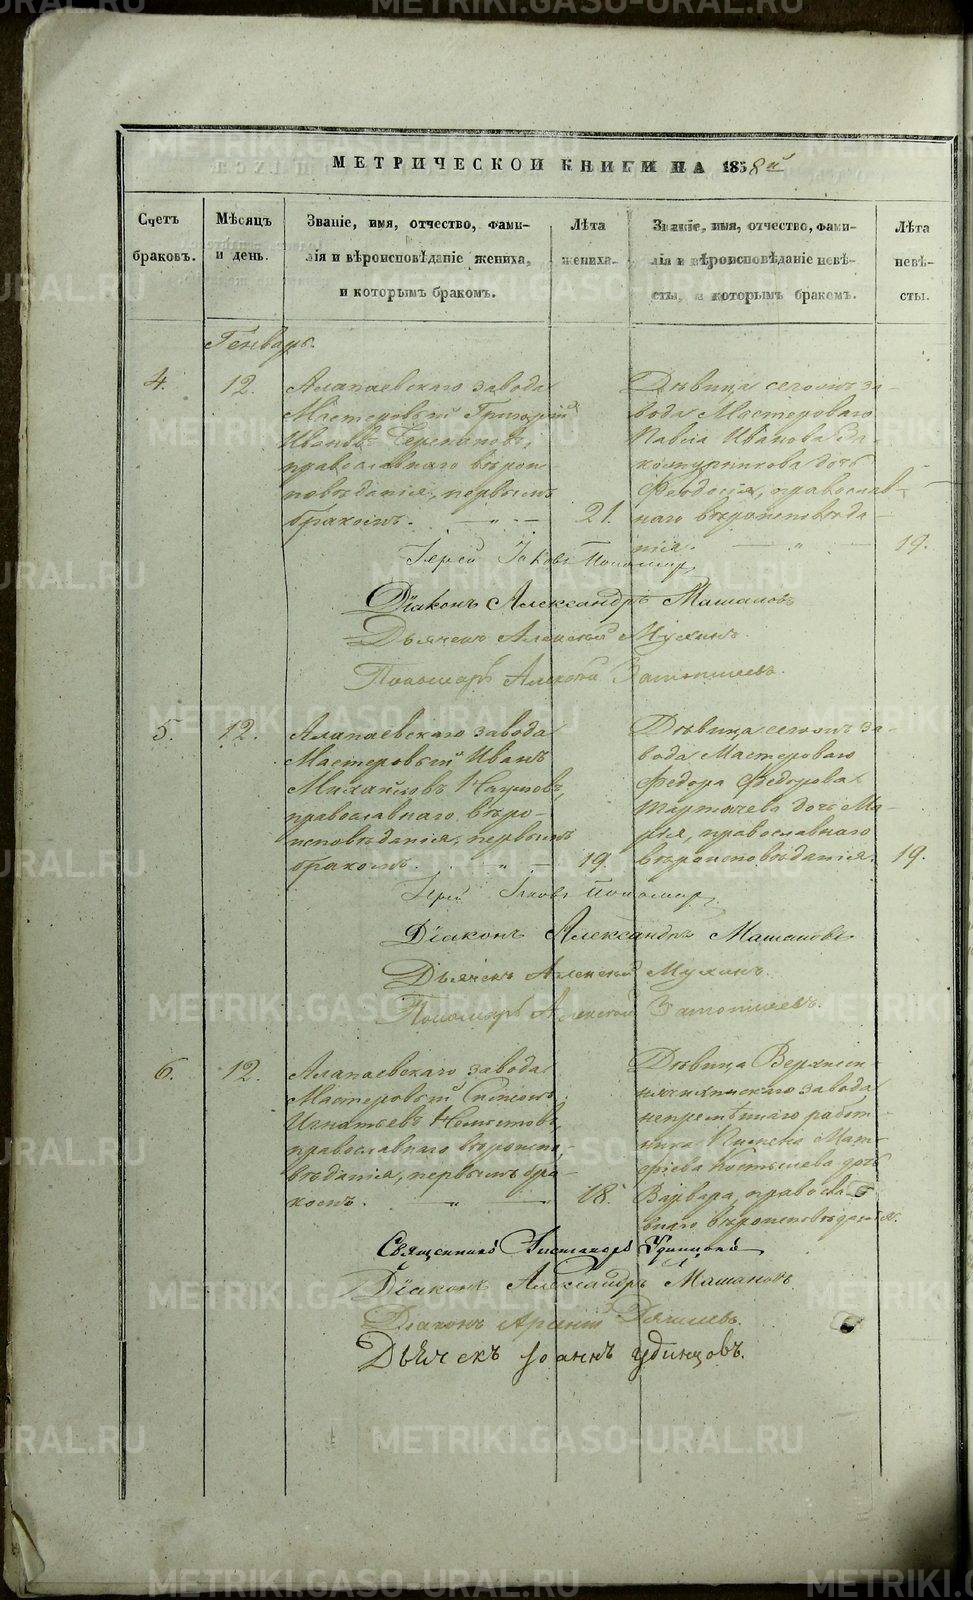 МЕТРИЧЕСКОЙ КНИГИ НА 1858й
Счетъ браковъ.
Мѣсяцъ и день.
Званіе, имя, отчество, фами-
лія и вѣроисповѣданіе жениха,
и которымъ бракомъ.
Лѣта жениха.
Званіе, имя, отчество, фами-
лія и вѣроисповѣданіе невѣ-
сты, и которымъ бракомъ.
Лѣта невѣ-
сты.
Генварь.
4.
12.
Алапаевскаго завода
Мастеровый Григорій
Ивановъ Черепановъ,
православнаго вѣроис-
повѣданія, первымъ
бракомъ.
21.
Дѣвица сегожъ за-
вода Мастероваго
Павла Иванова За-
дочь
Феодосія, православ-
наго вѣроисповѣда-
нія.
19.
Іерей Іаковъ Пономаревъ
Діаконъ Александръ Машановъ
Дьячекъ Алексѣй Мухинъ.
Пономарь Алексѣй
5.
12.
Алапаевскаго завода
Мастеровый Иванъ
Михайловъ Наумовъ,
православнаго вѣро-
исповѣданія, первымъ
бракомъ.
19.
Дѣвица сегожъ за-
вода Мастероваго
Федора Федорова
дочь Ма-
рія, православнаго
вѣроисповѣданія.
19.
Іерей Іаковъ Пономаревъ
Діаконъ Александръ Машановъ
Дьячекъ Алексѣй Мухинъ.
Пономарь Алексѣй
6.
12.
Алапаевскаго завода
Мастеровый Симеонъ
Игнатьевъ
православнаго вѣроиспо-
вѣданія, первымъ бра-
комъ.
18.
Дѣвица Верхнеси-
нячихинскаго завода
непремѣннаго работ-
ника Мат-
фіева Костылева дочь
Варвара, правосла-
внаго вѣроисповѣданія.
Священникъ Удинцовъ
Діаконъ Александръ Машановъ
Діаконъ Арсеній
Дьячекъ Іоаннъ Удинцовъ.
METRIKI.GASO-URAL.RU